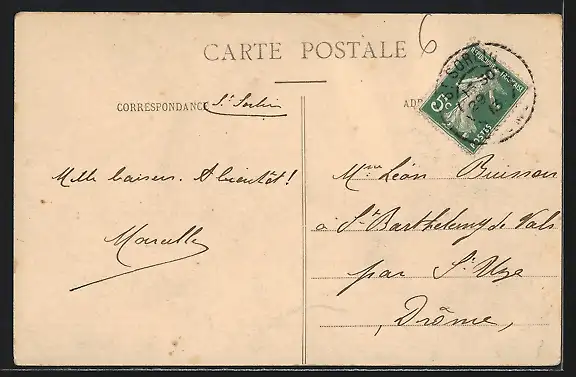 CARTE POSTALE
6
CORRESPONDANCE
St Sorlin
Mille baisers. A bientôt!
Marcelle
AD
5c
POSTES
Mme Léon Buisson
à St Barthelemy de Vals
par St Uze
Drôme,